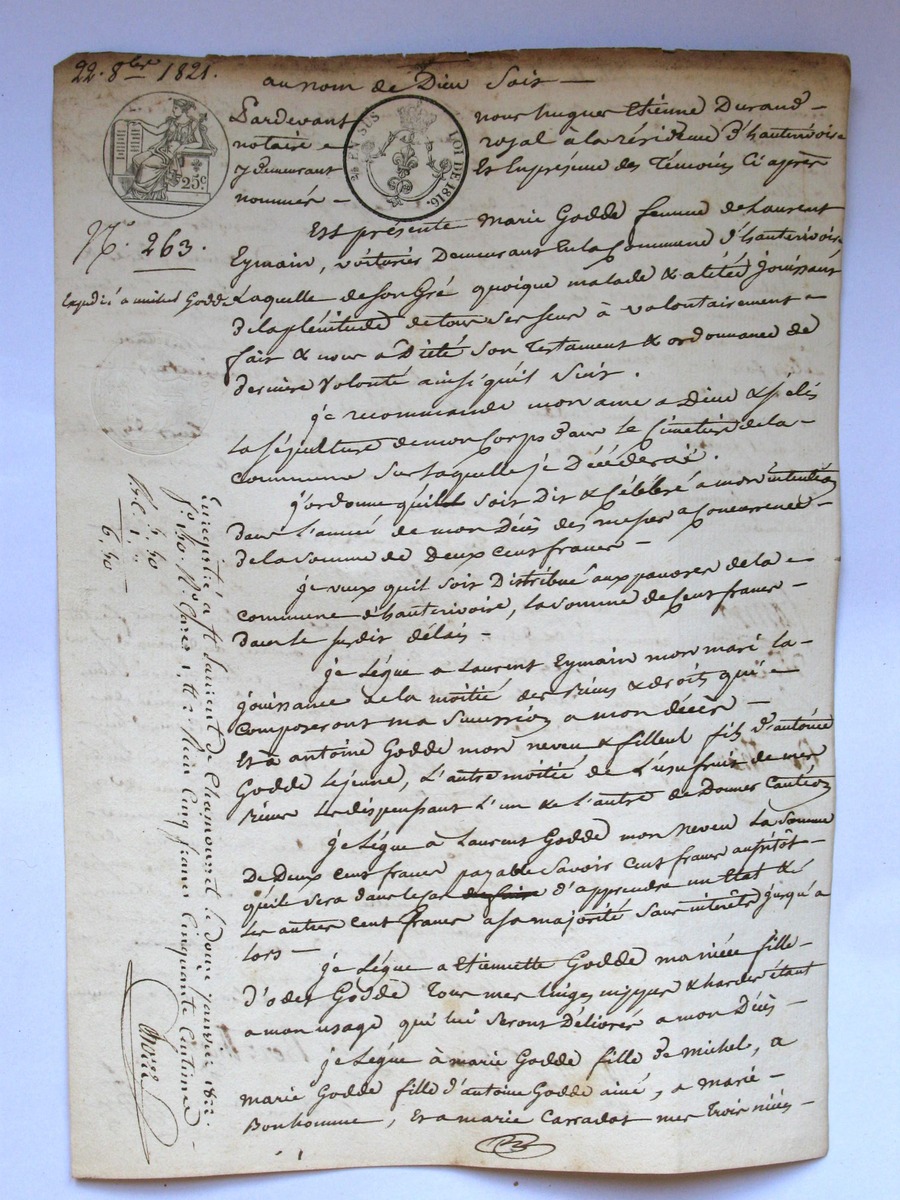 22. 8bre 1821.
au nom de Dieu Soit —
Pardevant nous hugues Etienne Durand -
notaire royal à la résidence d'hauterivoire
y Demeurant Et En présence des Témoins Ci après
nommés -
25c
2/10 EN SUS LOI DE 1816.
N°. 263.
Expédié a michel Godde
Est présente Marie Godde femme de Laurent
Eymain, voiturier Demeurant En la Commune d'hauterivoire
Laquelle de Son Gré quoique malade & alitée jouissant
de la plénitude de tous Ses Sens à volontairement -
fait & nous a Dicté Son Testament & ordonnance de
dernière volonté ainsi qu'il Suit.
je recommande mon ame a Dieu & j'élis
La Sépulture de mon Corps Dans Le Cimetière de la -
Commune Sur Laquelle je Décéderai.
j'ordonne qu'il Soit Dit & Célébré a mon intention
Dans L'année de mon Décès des messes a Concurrence -
de la Somme de Deux Cent francs -
je veux qu'il Soit Distribué aux pauvres de la -
Commune d'hauterivoire, La Somme de Cent francs -
Dans le Susdit délais -
je Lègue a Laurent Eymain mon mari La -
jouissance de la moitié des Biens & droits qui -
Composeront ma Succession a mon décès -
Et à antoine Godde mon neveu & filleul fils d'antoine
Godde Lejeune, L'autre moitié de L'usufruit de mes
Biens Les dispensant L'un & L'autre de Donner Caution
je Lègue à Laurent Godde mon neveu La Somme
De Deux Cent francs payable Savoir Cent francs aussitôt -
qu'il Sera dans le Cas d'apprendre un Etat &
Les autres Cent francs a Sa majorité Sans intérêts jusqu'a
Lors -
je Lègue a Etiennette Godde mariée fille
d'odet Godde Tous mes Linges nippes & hardes étant
a mon usage qui lui Seront Délivrés a mon Décès -
je Lègue à marie Godde fille de michel, a
marie Godde fille d'antoine Godde ainé, a marie -
Bonhomme, Et a marie Carradot mes Trois nièces -
Enregistré à St Laurent de Chamousset le douze janvier 1822.
Reçu Cinq francs Cinquante Centimes -
5. 50
1.
6. 50